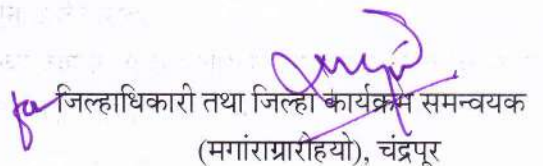 जिल्हाधिकारी तथा जिल्हा कार्यक्रम समन्वयक
(मगांराग्रारोहयो), चंद्रपूर